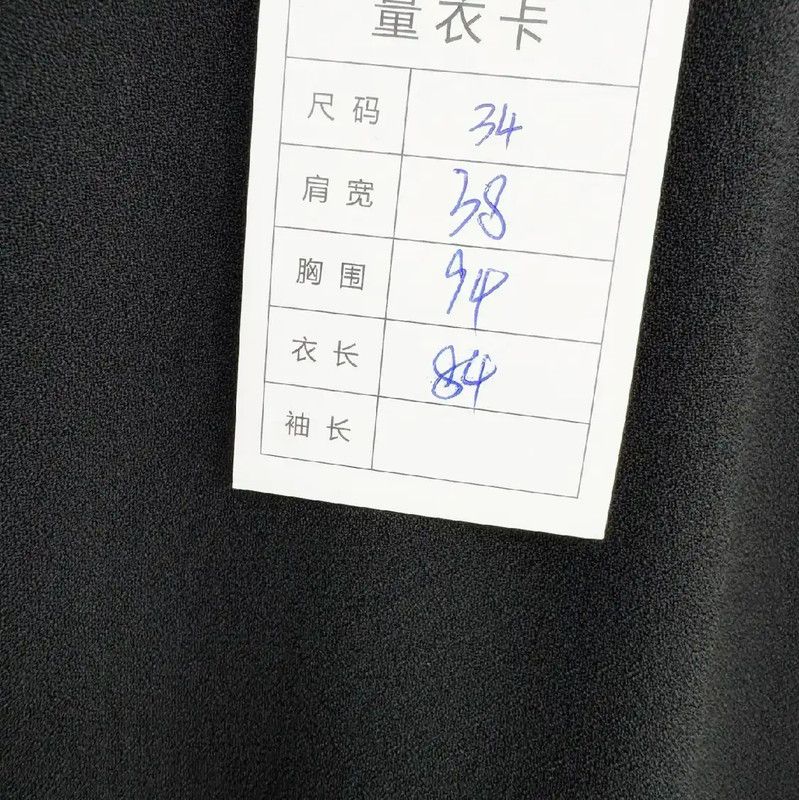 量衣卡
尺码 34
肩宽 38
胸围 94
衣长 84
袖长